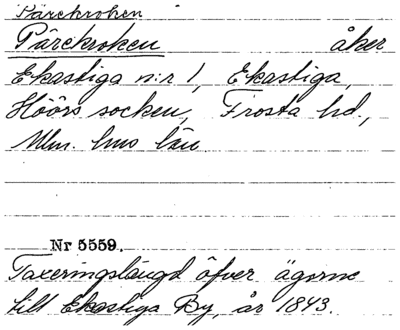 Pärekroken
Pärekroken åker
Ekastiga n:r 1, Ekastiga,
Höörs socken, Frosta hd.,
Mlm. hus län
Nr 5559.
Taxeringslängd öfver ägorne
till Ekastiga By, år 1843.